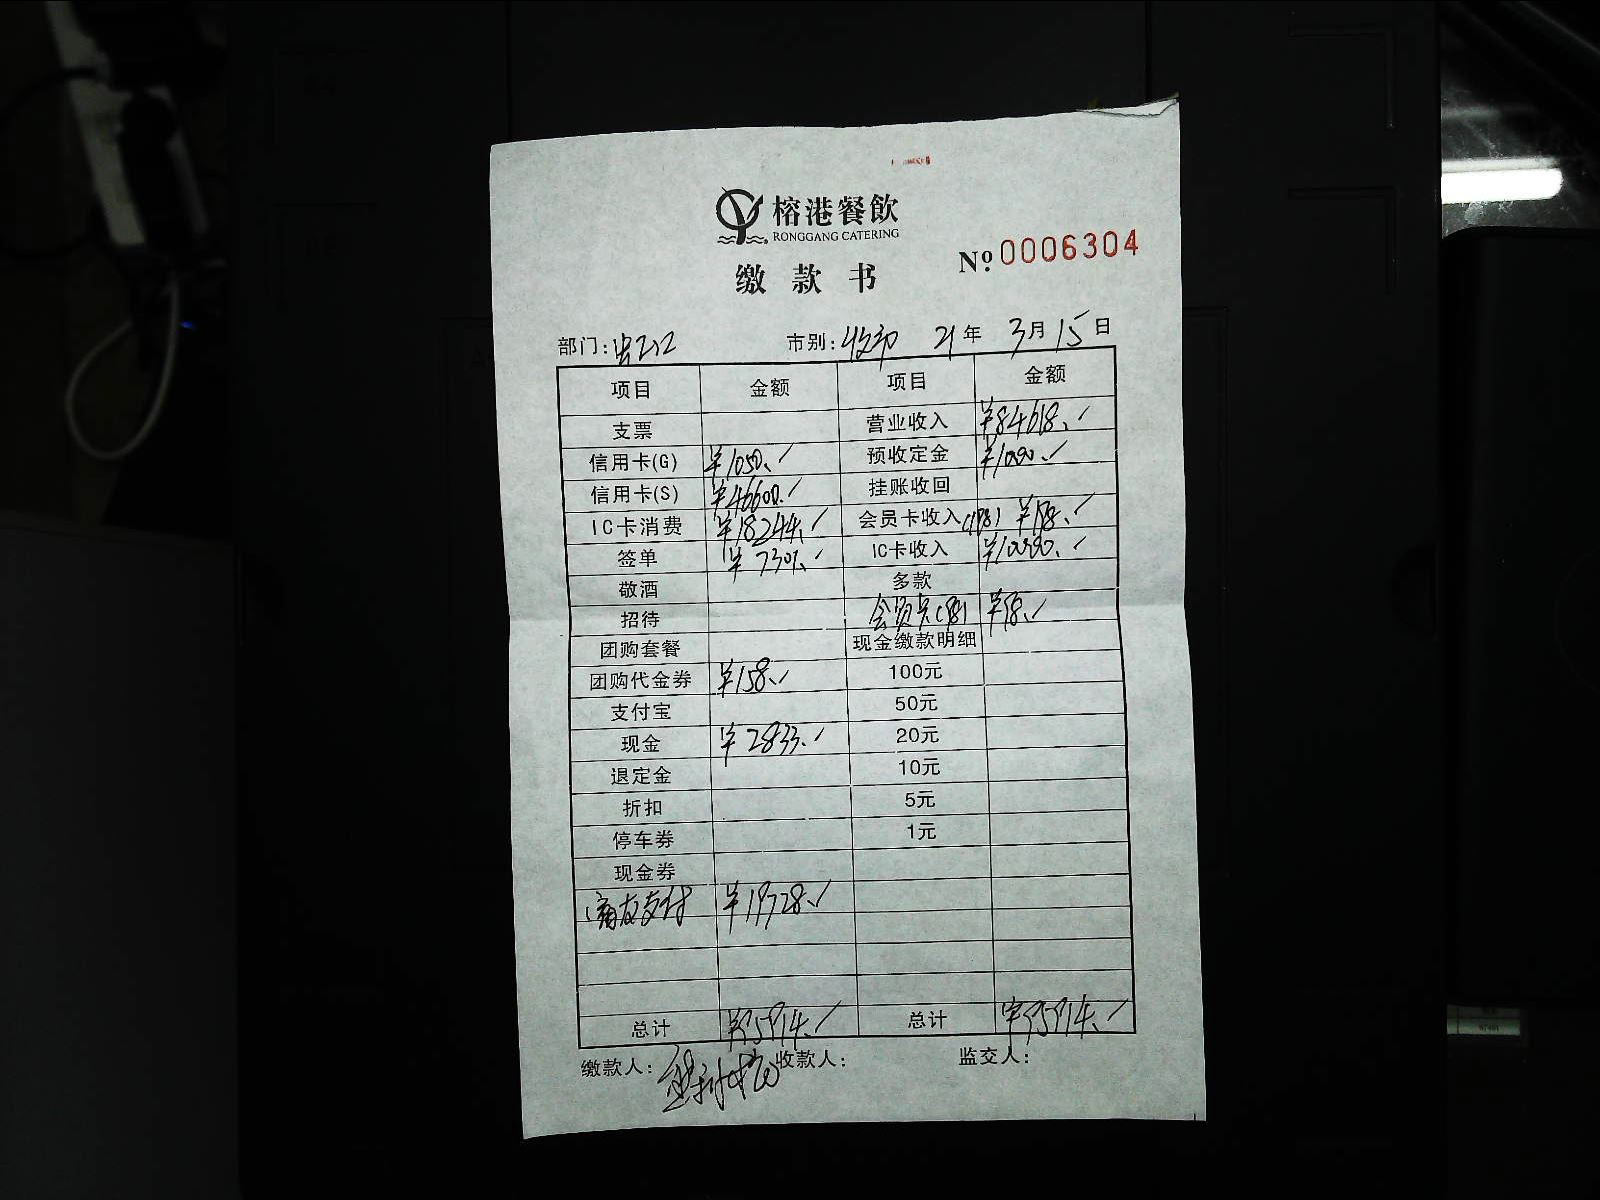 榕港餐飲
RONGGANG CATERING
缴款书
Nº 0006304
部门: 市别: 21年 3月15日
项目 金额 项目 金额
支票 营业收入 ¥84618.
信用卡(G) ¥1050. 预收定金 ¥1000.
信用卡(S) ¥46600. 挂账收回
IC卡消费 ¥18244. 会员卡收入(198) ¥198.
签单 ¥7301. IC卡收入 ¥10000.
敬酒 多款
招待 会员卡(98) ¥98.
团购套餐 现金缴款明细
团购代金券 ¥158. 100元
支付宝 50元
现金 ¥2833. 20元
退定金 10元
折扣 5元
停车券 1元
现金券
支付 ¥19728.
总计 ¥95914. 总计 ¥95914.
缴款人: 收款人: 监交人: